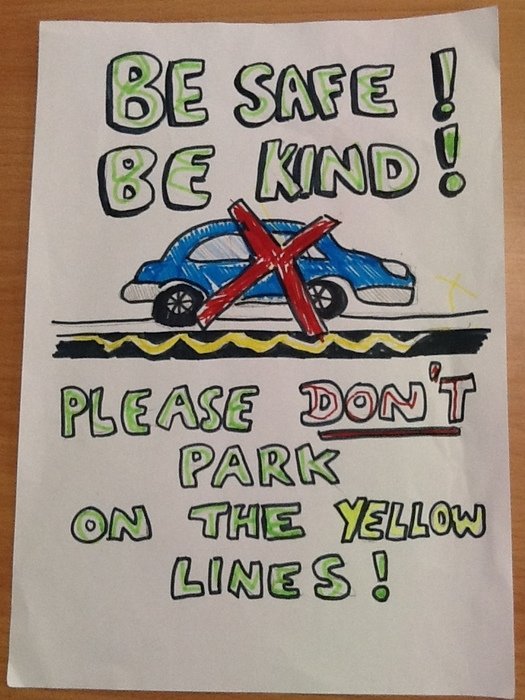 BE SAFE!
BE KIND!
PLEASE DON'T
PARK
ON THE YELLOW
LINES!